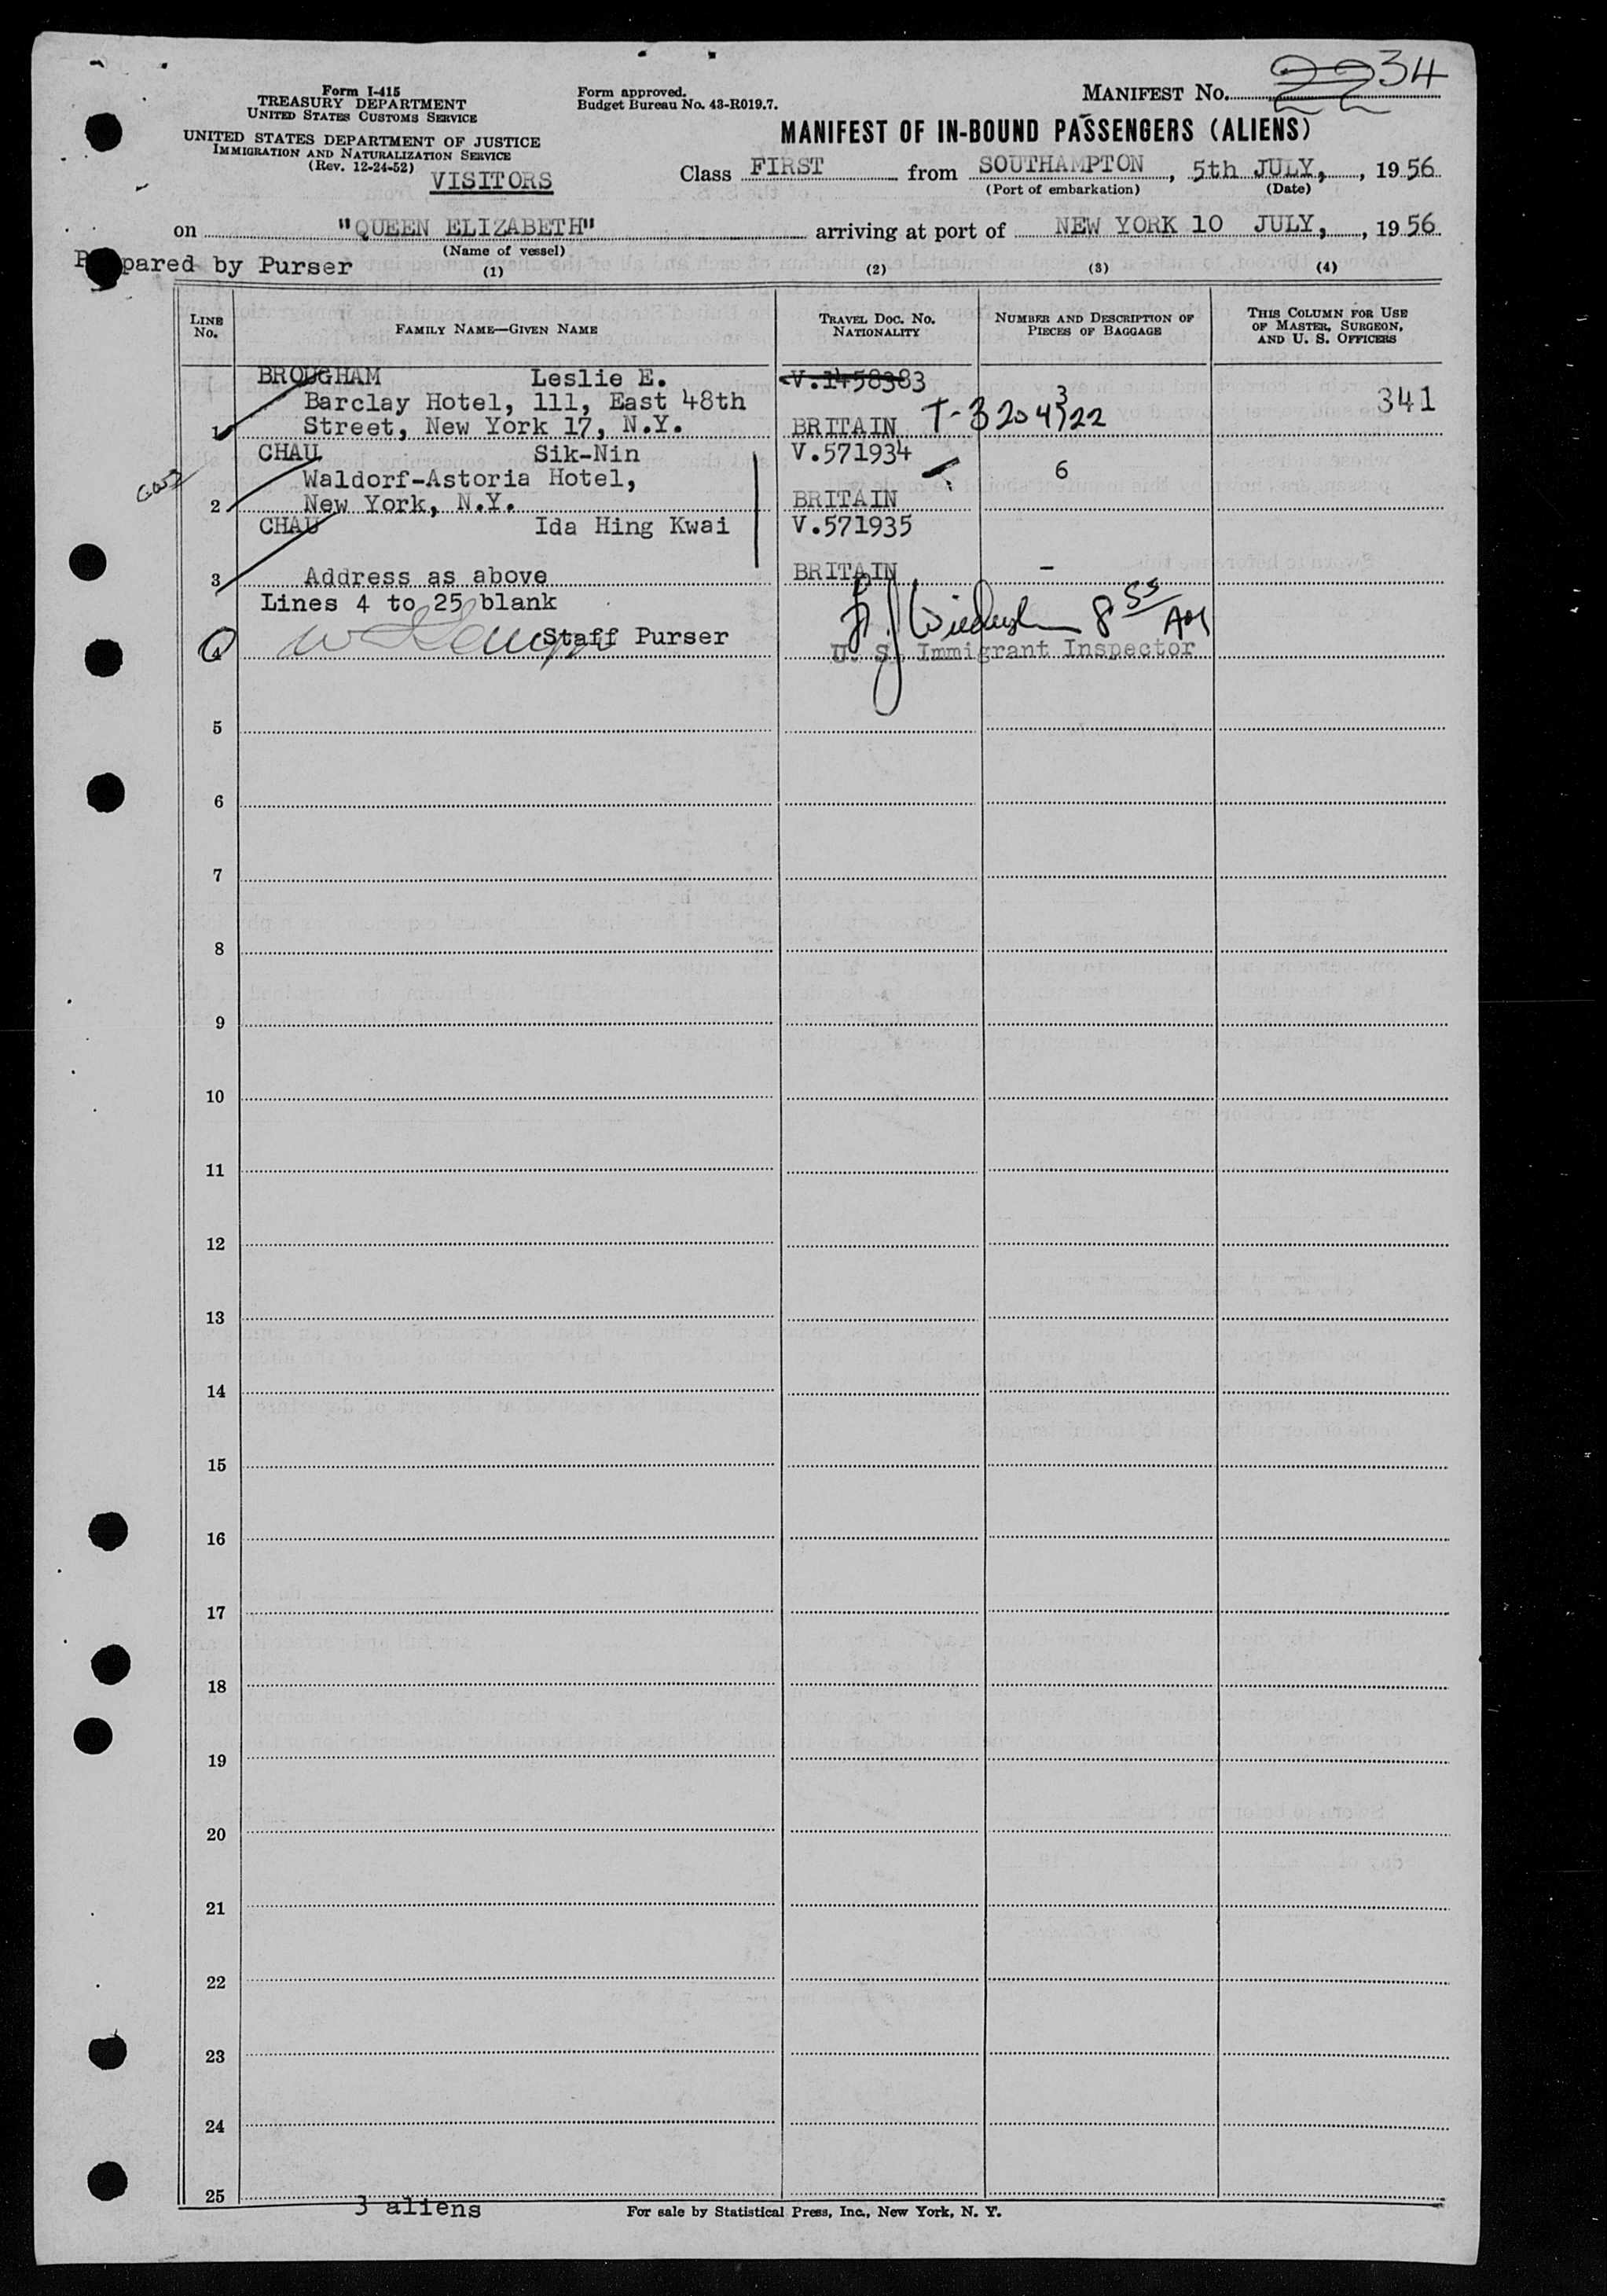 Form I-415
TREASURY DEPARTMENT
UNITED STATES CUSTOMS SERVICE
UNITED STATES DEPARTMENT OF JUSTICE
IMMIGRATION AND NATURALIZATION SERVICE
(Rev. 12-24-52)
VISITORS
Form approved.
Budget Bureau No. 43-R019.7.
MANIFEST No. 22 34
MANIFEST OF IN-BOUND PASSENGERS (ALIENS)
Class FIRST from SOUTHAMPTON, 5th JULY, , 1956
(Port of embarkation) (Date)
on "QUEEN ELIZABETH" arriving at port of NEW YORK 10 JULY, , 1956
(Name of vessel)
Prepared by Purser
(1) (2) (3) (4)
LINE No. FAMILY NAME—GIVEN NAME TRAVEL DOC. No. NATIONALITY NUMBER AND DESCRIPTION OF PIECES OF BAGGAGE THIS COLUMN FOR USE OF MASTER, SURGEON, AND U. S. OFFICERS
BROUGHAM Leslie E. V.1458383
Barclay Hotel, 111, East 48th 3 341
1 Street, New York 17, N.Y. BRITAIN T-3204922
CHAU Sik-Nin V.571934
Waldorf-Astoria Hotel, 6
2 New York, N.Y. BRITAIN
CHAU Ida Hing Kwai V.571935
3 Address as above BRITAIN -
Lines 4 to 25 blank
Staff Purser 8 55 AM
4 U. S. Immigrant Inspector
5
6
7
8
9
10
11
12
13
14
15
16
17
18
19
20
21
22
23
24
25
3 aliens
For sale by Statistical Press, Inc., New York, N. Y.